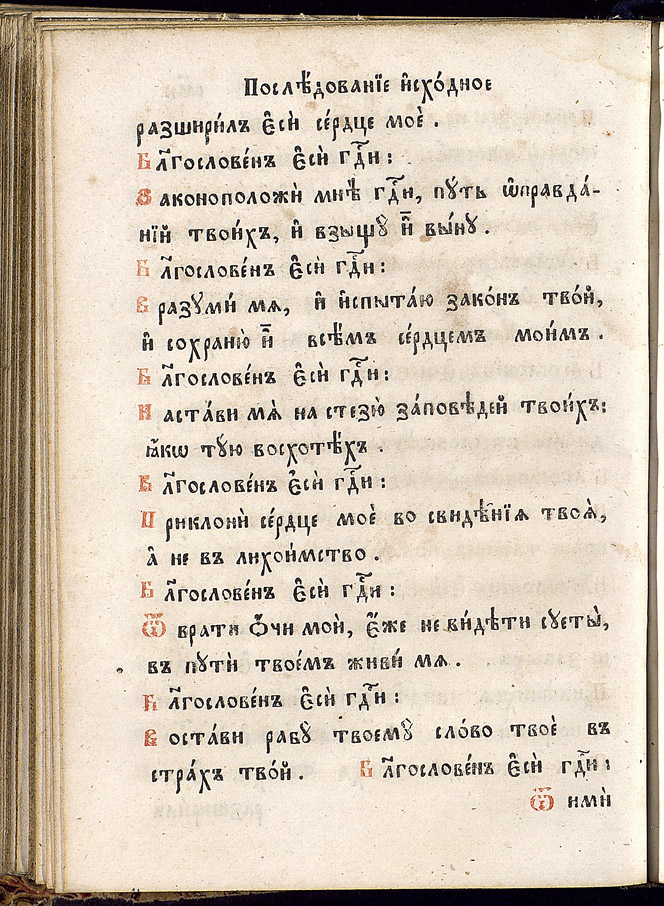 Послѣ́дованїе и҆схо́дное
разшири́лъ є҆сѝ се́рдце моѐ .
Бл҃гослове́нъ є҆сѝ гдⷭ҇и :
Законоположѝ мнѣ̀ гдⷭ҇и, пꙋ́ть ѡ҆правда́-
нїй твои́хъ, и҆ взыщꙋ̀ и҆̀ вы́нꙋ .
Бл҃гослове́нъ є҆сѝ гдⷭ҇и :
Вразꙋми́ мѧ, и҆ и҆спыта́ю зако́нъ тво́й,
и҆ сохраню̀ и҆̀ всѣ́мъ се́рдцемъ мои́мъ .
Бл҃гослове́нъ є҆сѝ гдⷭ҇и :
Наста́ви мѧ̀ на стезю̀ за́повѣдей твои́хъ :
ꙗ҆́кѡ тꙋ́ю восхотѣ́хъ .
Бл҃гослове́нъ є҆сѝ гдⷭ҇и :
Приклонѝ се́рдце моѐ во свидѣ́нїѧ твоѧ̀,
а҆̀ не въ лихои́мство .
Бл҃гослове́нъ є҆сѝ гдⷭ҇и :
Ѿвратѝ ѻ҆́чи моѝ, є҆́же не ви́дѣти сꙋеты̀,
въ пꙋтѝ твое́мъ живи́ мѧ .
Бл҃гослове́нъ є҆сѝ гдⷭ҇и :
Воста́ви рабꙋ̀ твоемꙋ̀ сло́во твоѐ въ
стра́хъ тво́й . Бл҃гослове́нъ є҆сѝ гдⷭ҇и :
Ѿ имѝ